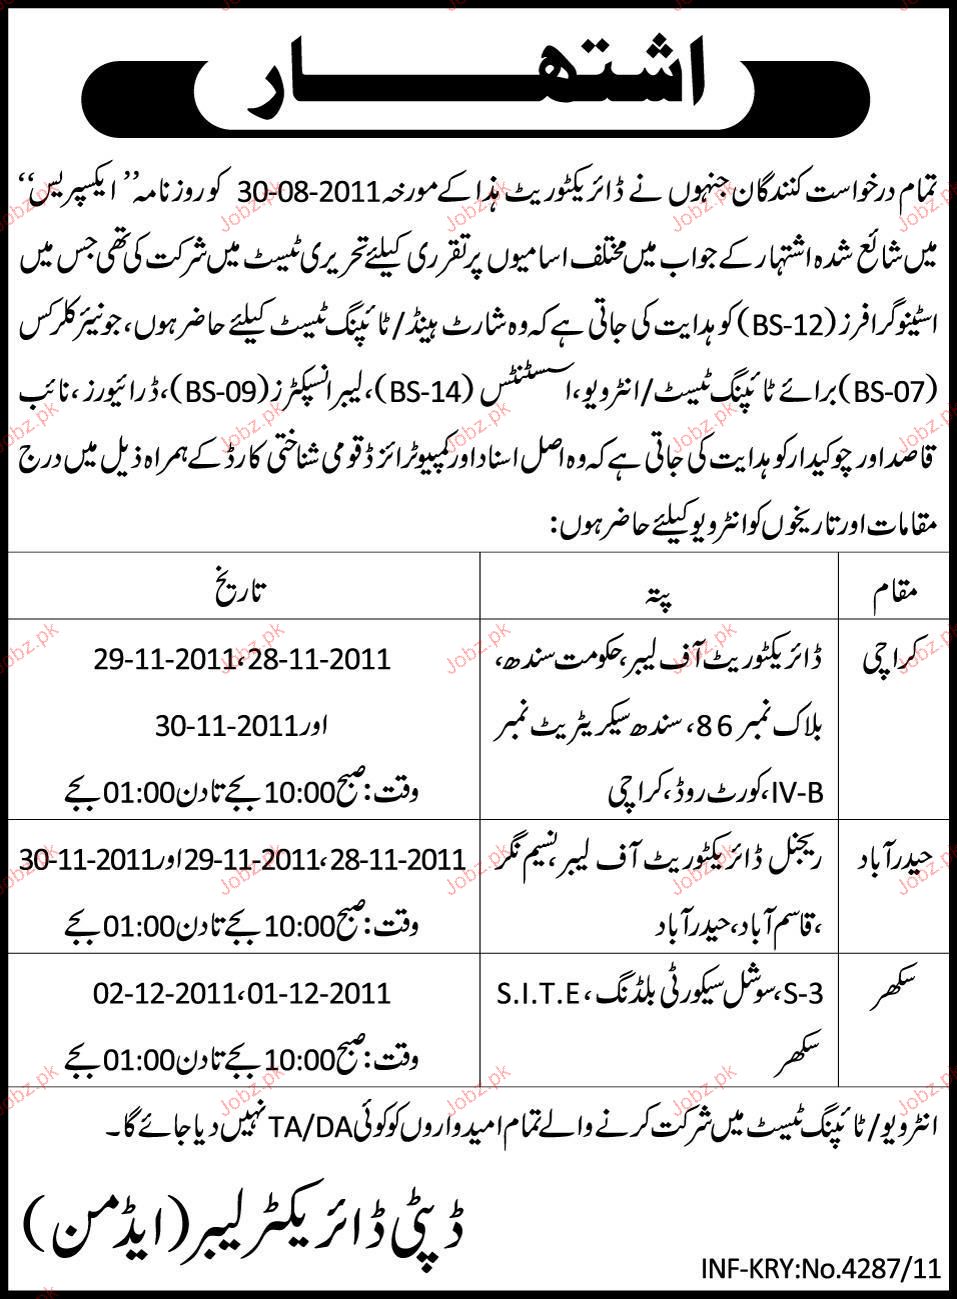 اشتہار
تمام درخواست کنندگان جنہوں نے ڈائریکٹوریٹ ہذا کے مورخہ 30-08-2011 کو روزنامہ ”ایکسپریس“
میں شائع شدہ اشتہار کے جواب میں مختلف اسامیوں پر تقرری کیلئے تحریری ٹیسٹ میں شرکت کی تھی جس میں
اسٹینوگرافرز (BS-12) کو ہدایت کی جاتی ہے کہ وہ شارٹ ہینڈ/ٹائپنگ ٹیسٹ کیلئے حاضر ہوں، جونیئر کلرکس
(BS-07) برائے ٹائپنگ ٹیسٹ/انٹرویو، اسسٹنٹس (BS-14)، لیبر انسپکٹرز (BS-09)، ڈرائیورز، نائب
قاصد اور چوکیدار کو ہدایت کی جاتی ہے کہ وہ اصل اسناد اور کمپیوٹرائزڈ قومی شناختی کارڈ کے ہمراہ ذیل میں درج
مقامات اور تاریخوں کو انٹرویو کیلئے حاضر ہوں:
مقام پتہ تاریخ
کراچی ڈائریکٹوریٹ آف لیبر، حکومت سندھ، 28-11-2011، 29-11-2011
بلاک نمبر 86، سندھ سیکریٹریٹ نمبر اور 30-11-2011
IV-B، کورٹ روڈ، کراچی وقت: صبح 10:00 بجے تا دن 01:00 بجے
حیدرآباد ریجنل ڈائریکٹوریٹ آف لیبر، نسیم نگر 28-11-2011، 29-11-2011 اور 30-11-2011
، قاسم آباد، حیدرآباد وقت: صبح 10:00 بجے تا دن 01:00 بجے
سکھر S-3، سوشل سیکورٹی بلڈنگ، S.I.T.E 01-12-2011، 02-12-2011
سکھر وقت: صبح 10:00 بجے تا دن 01:00 بجے
انٹرویو/ٹائپنگ ٹیسٹ میں شرکت کرنے والے تمام امیدواروں کو کوئی TA/DA نہیں دیا جائے گا۔
ڈپٹی ڈائریکٹر لیبر (ایڈمن)
INF-KRY:No.4287/11
Jobz.pk